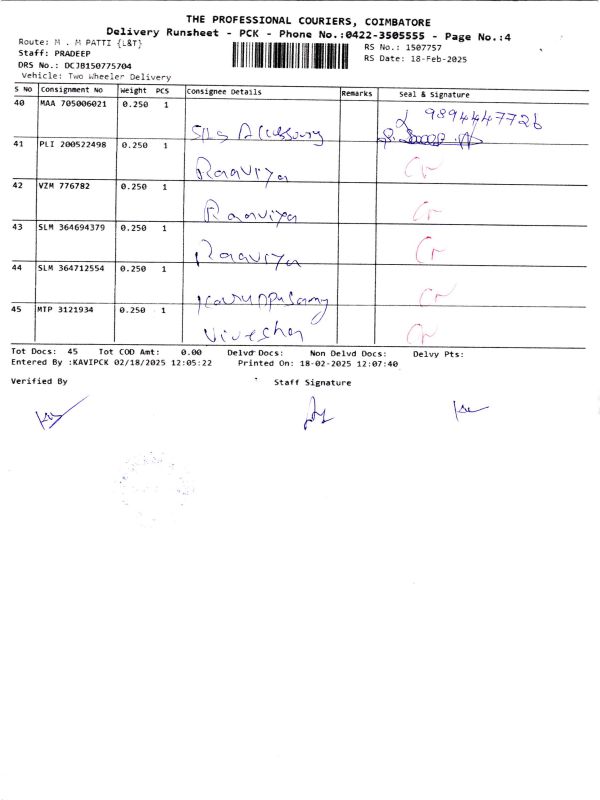 THE PROFESSIONAL COURIERS, COIMBATORE
Delivery Runsheet - PCK - Phone No.:0422-3505555 - Page No.:4
Route: M . M PATTI {L&T} RS No.: 1507757
Staff: PRADEEP RS Date: 18-Feb-2025
DRS No.: DCJB150775704
Vehicle: Two Wheeler Delivery
S No Consignment No Weight PCS Consignee Details Remarks Seal & Signature
40 MAA 705006021 0.250 1 9894447726
41 PLI 200522498 0.250 1 Raaviya Cr
42 VZM 776782 0.250 1 Raaviya Cr
43 SLM 364694379 0.250 1 Raaviya Cr
44 SLM 364712554 0.250 1 Karuppusamy Cr
45 MTP 3121934 0.250 1 Cr
Tot Docs: 45 Tot COD Amt: 0.00 Delvd Docs: Non Delvd Docs: Delvy Pts:
Entered By :KAVIPCK 02/18/2025 12:05:22 Printed On: 18-02-2025 12:07:40
Verified By Staff Signature